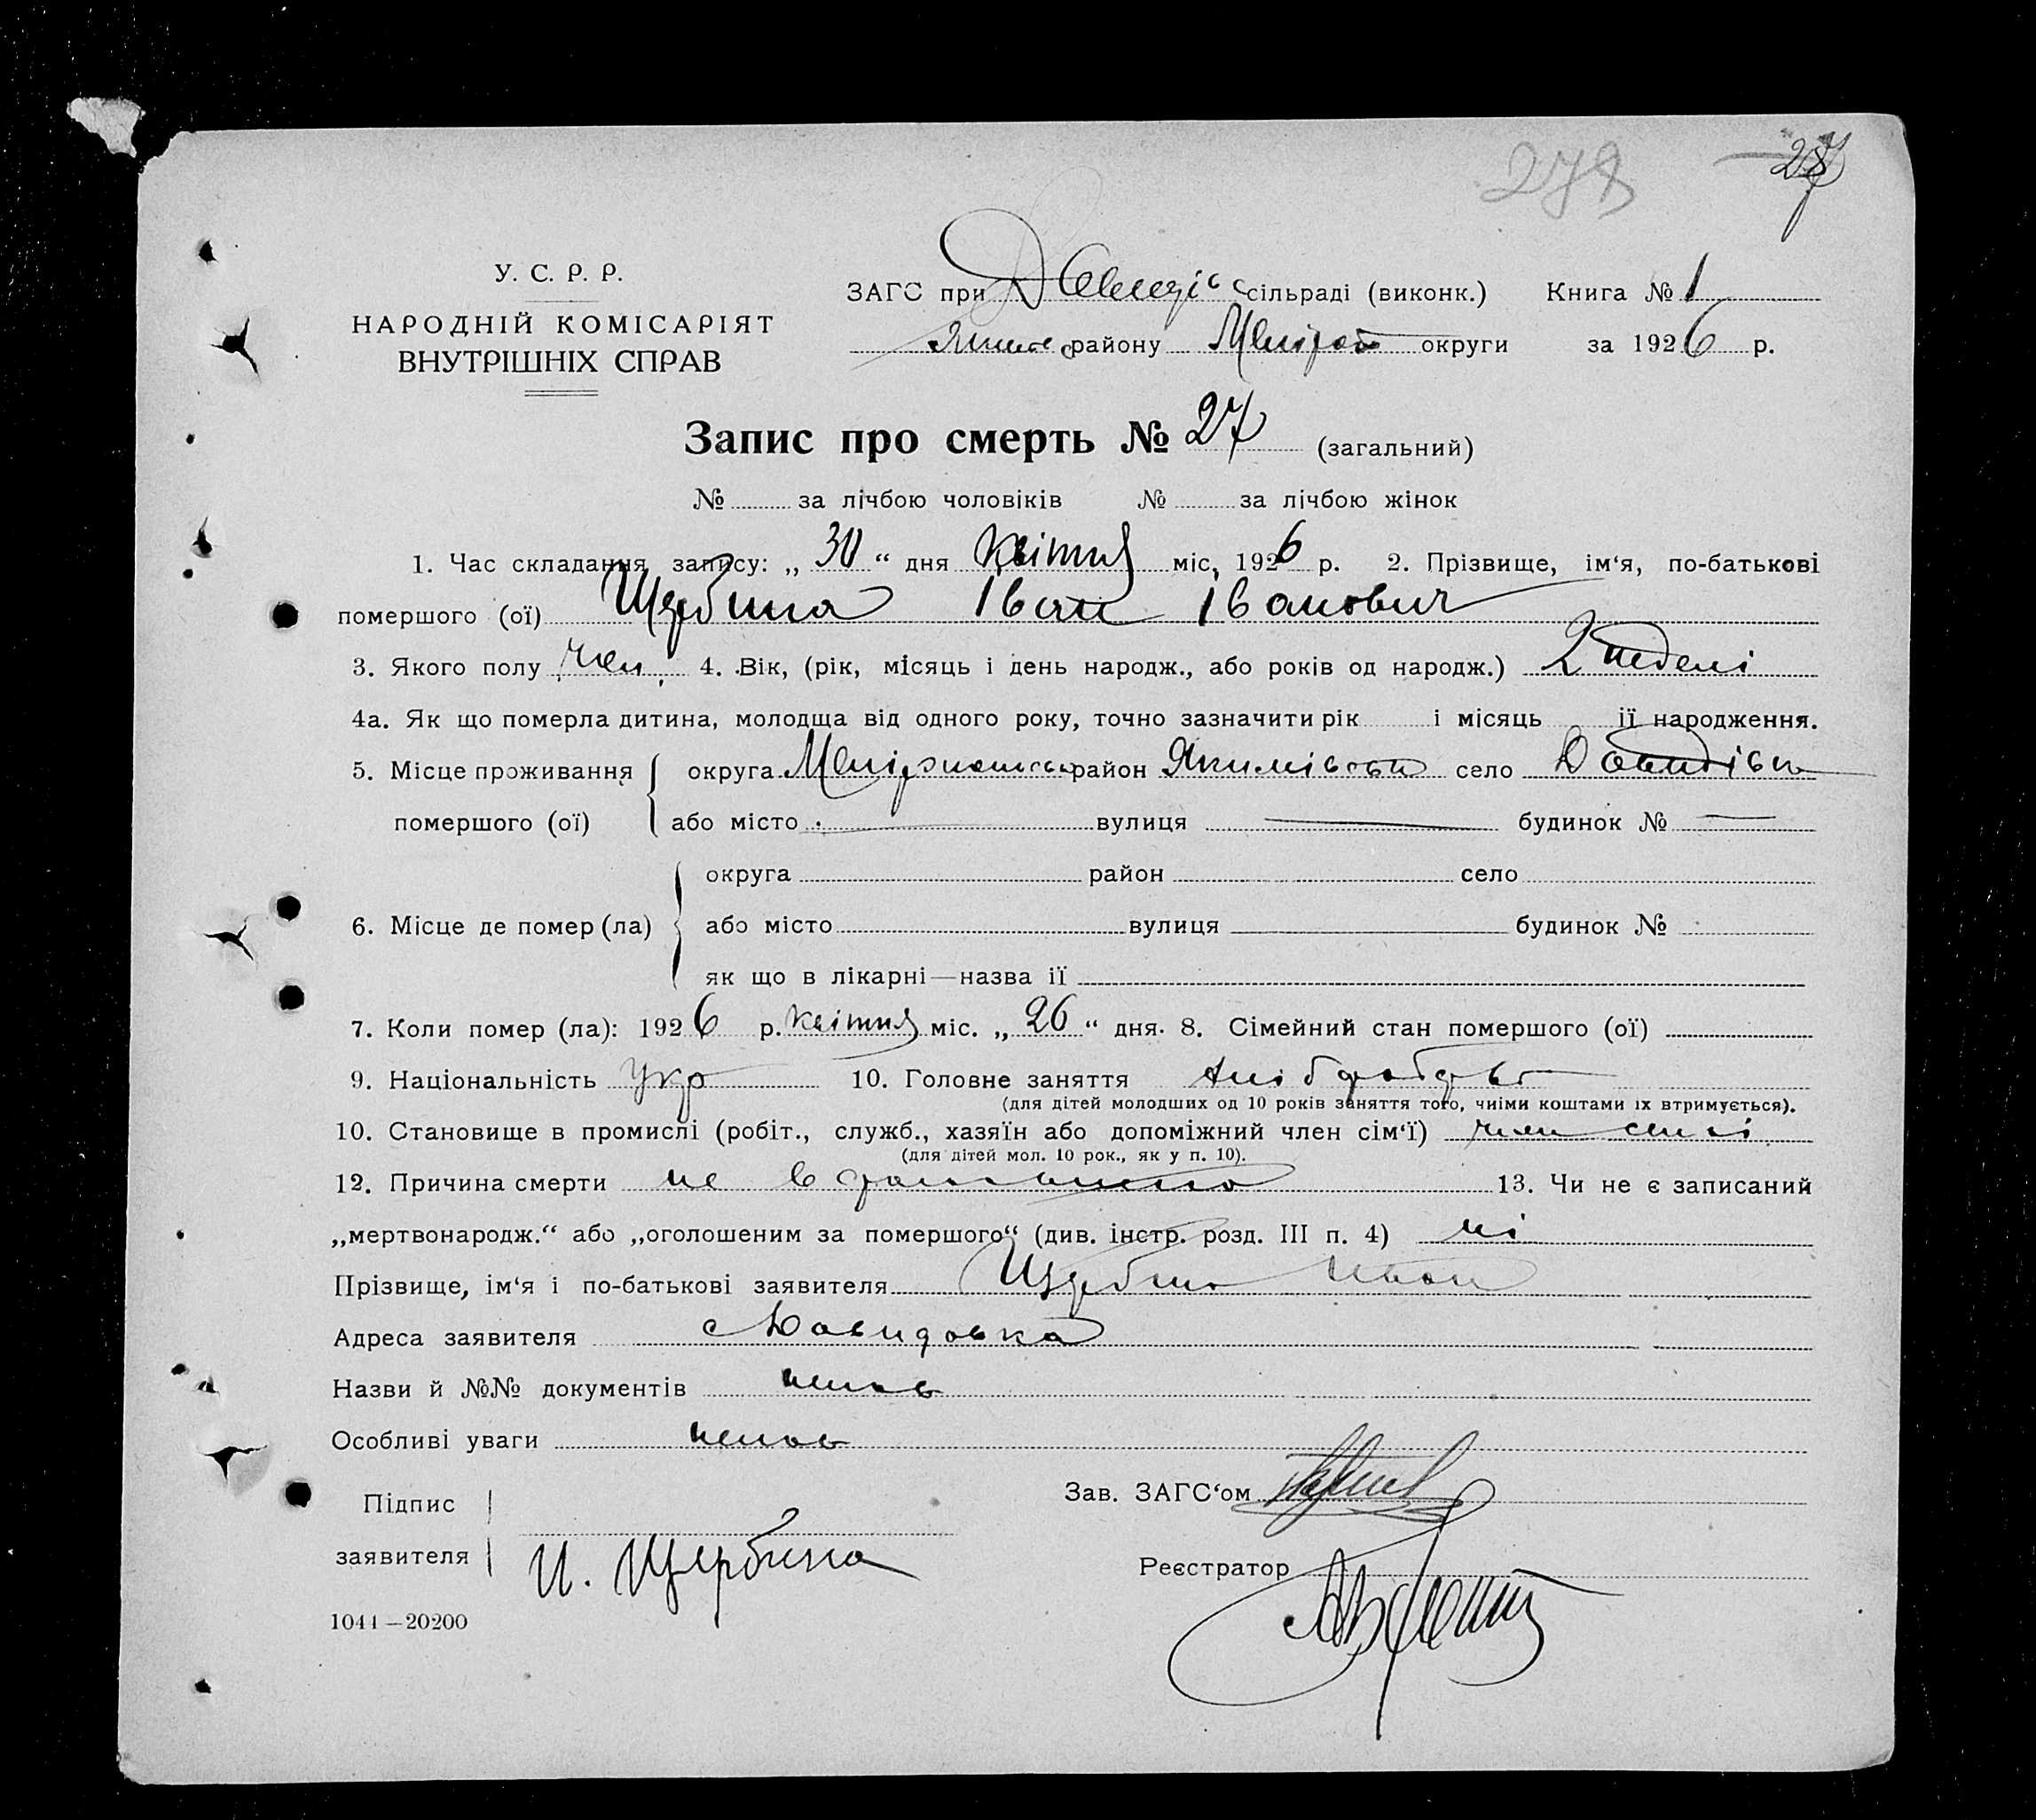 278
27
У. С. Р. Р.
НАРОДНІЙ КОМІСАРІЯТ
ВНУТРІШНІХ СПРАВ
ЗАГС при Давидівс сільраді (виконк.) Книга № 1
району Меліт округи за 1926 р.
Запис про смерть № 27 (загальний)
№ за лічбою чоловіків № за лічбою жінок
1. Час складання запису: „ 30 “ дня квітня міс, 1926 р. 2. Прізвище, ім‘я, по-батькові
помершого (ої) Щербина Іван Іванович
3. Якого полу чол 4. Вік, (рік, місяць і день народж., або років од народж.) 2 неделі
4а. Як що померла дитина, молодща від одного року, точно зазначити рік і місяць її народження.
5. Місце проживання округа Мелітопольськ район Якимівськ село Давидівк
помершого (ої) або місто вулиця будинок №
округа район село
6. Місце де помер (ла) або місто вулиця будинок №
як що в лікарні—назва ії
7. Коли помер (ла): 1926 р. квітня міс. „ 26 “ дня. 8. Сімейний стан помершого (ої)
9. Національність Укр 10. Головне заняття хліборобство
(для дітей молодших од 10 років заняття того, чиіми коштами іх втримується).
10. Становище в промислі (робіт., служб., хазяїн або допоміжний член сім‘ї) член сім ї
(для дітей мол. 10 рок., як у п. 10).
12. Причина смерти не 13. Чи не є записаний
„мертвонародж.“ або „оголошеним за помершого“ (див. інстр. розд. III п. 4) ні
Прізвище, ім‘я і по-батькові заявителя Щербина Иван
Адреса заявителя с Давидовка
Назви й №№ документів немає
Особливі уваги немає
Підпис Зав. ЗАГС‘ом
заявителя И. Щербина Реєстратор
1044—20200